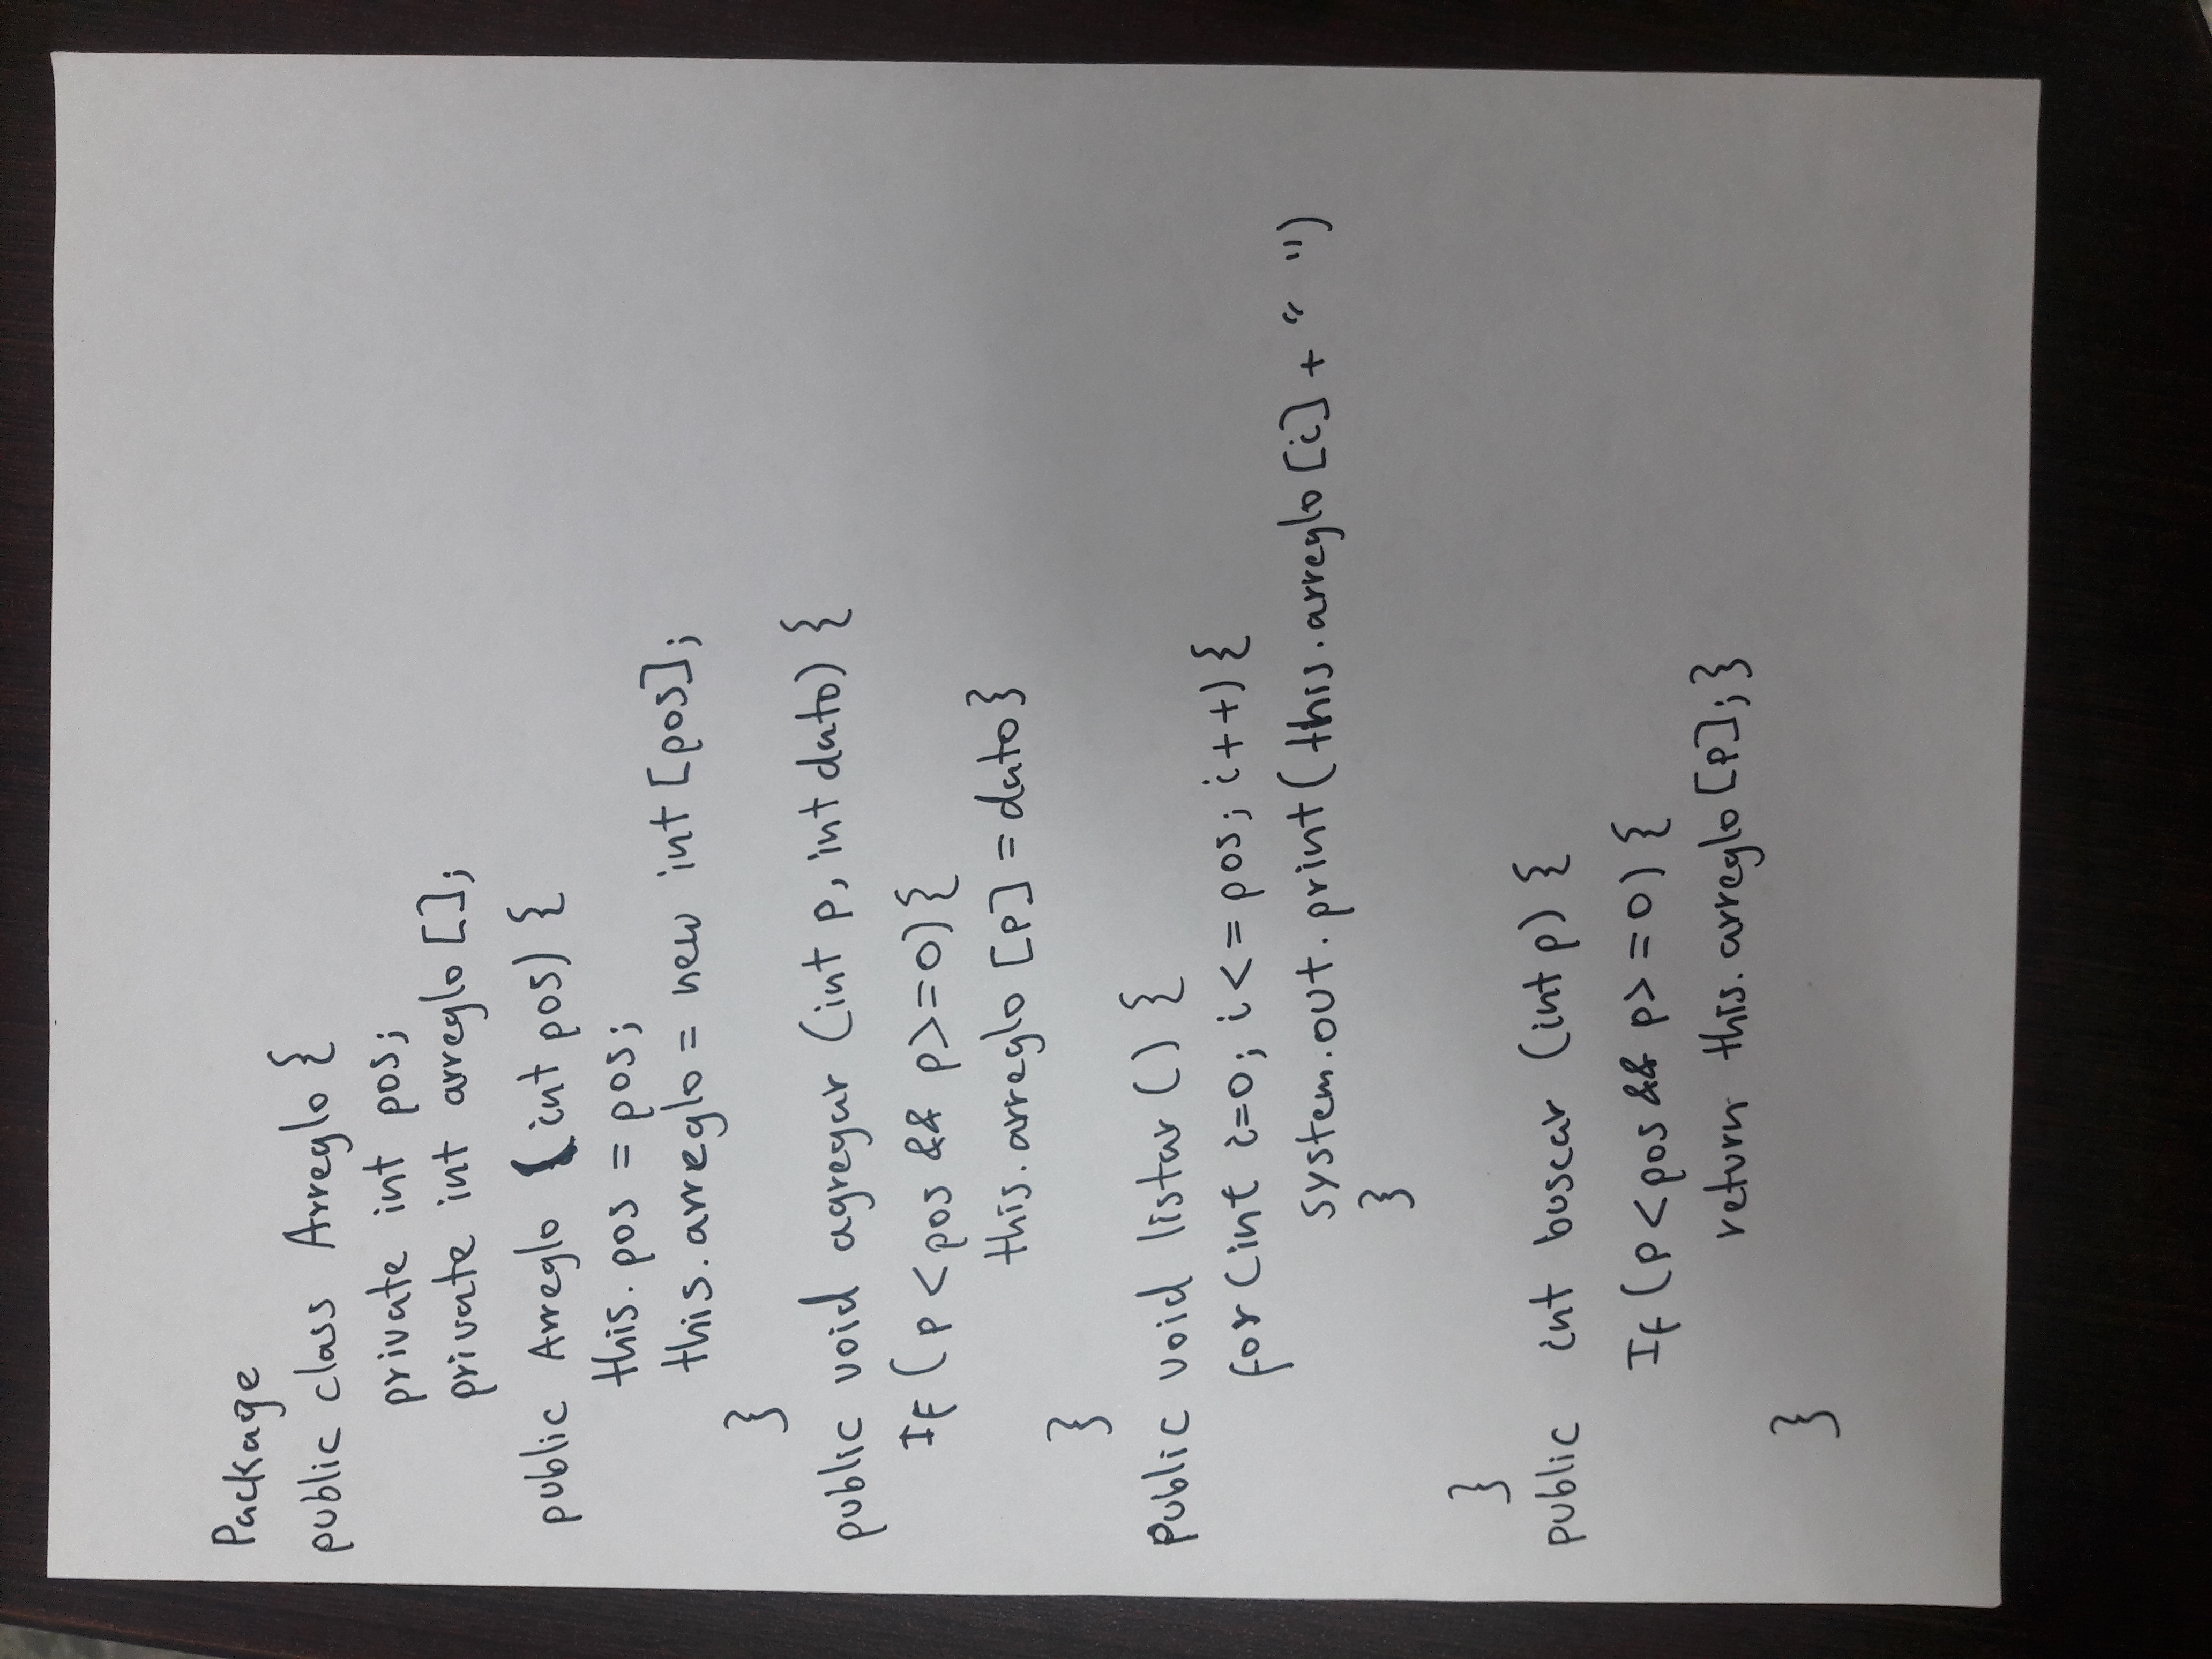 Package
public class Arreglo {
private int pos;
private int arreglo [];
public Arreglo (int pos) {
this. pos = pos;
this. arreglo = new int [pos];
}
public void agregar (int p, int dato) {
If (p < pos && p>=0){
this. arreglo [p] = dato}
}
Public void listar () {
for (int i=0; i<= pos; i++) {
system.out.print(this.arreglo [i] + “ ")
}
}
public int buscar (int p) {
If (p < pos && p> =0) {
return this. arreglo [p]; }
}